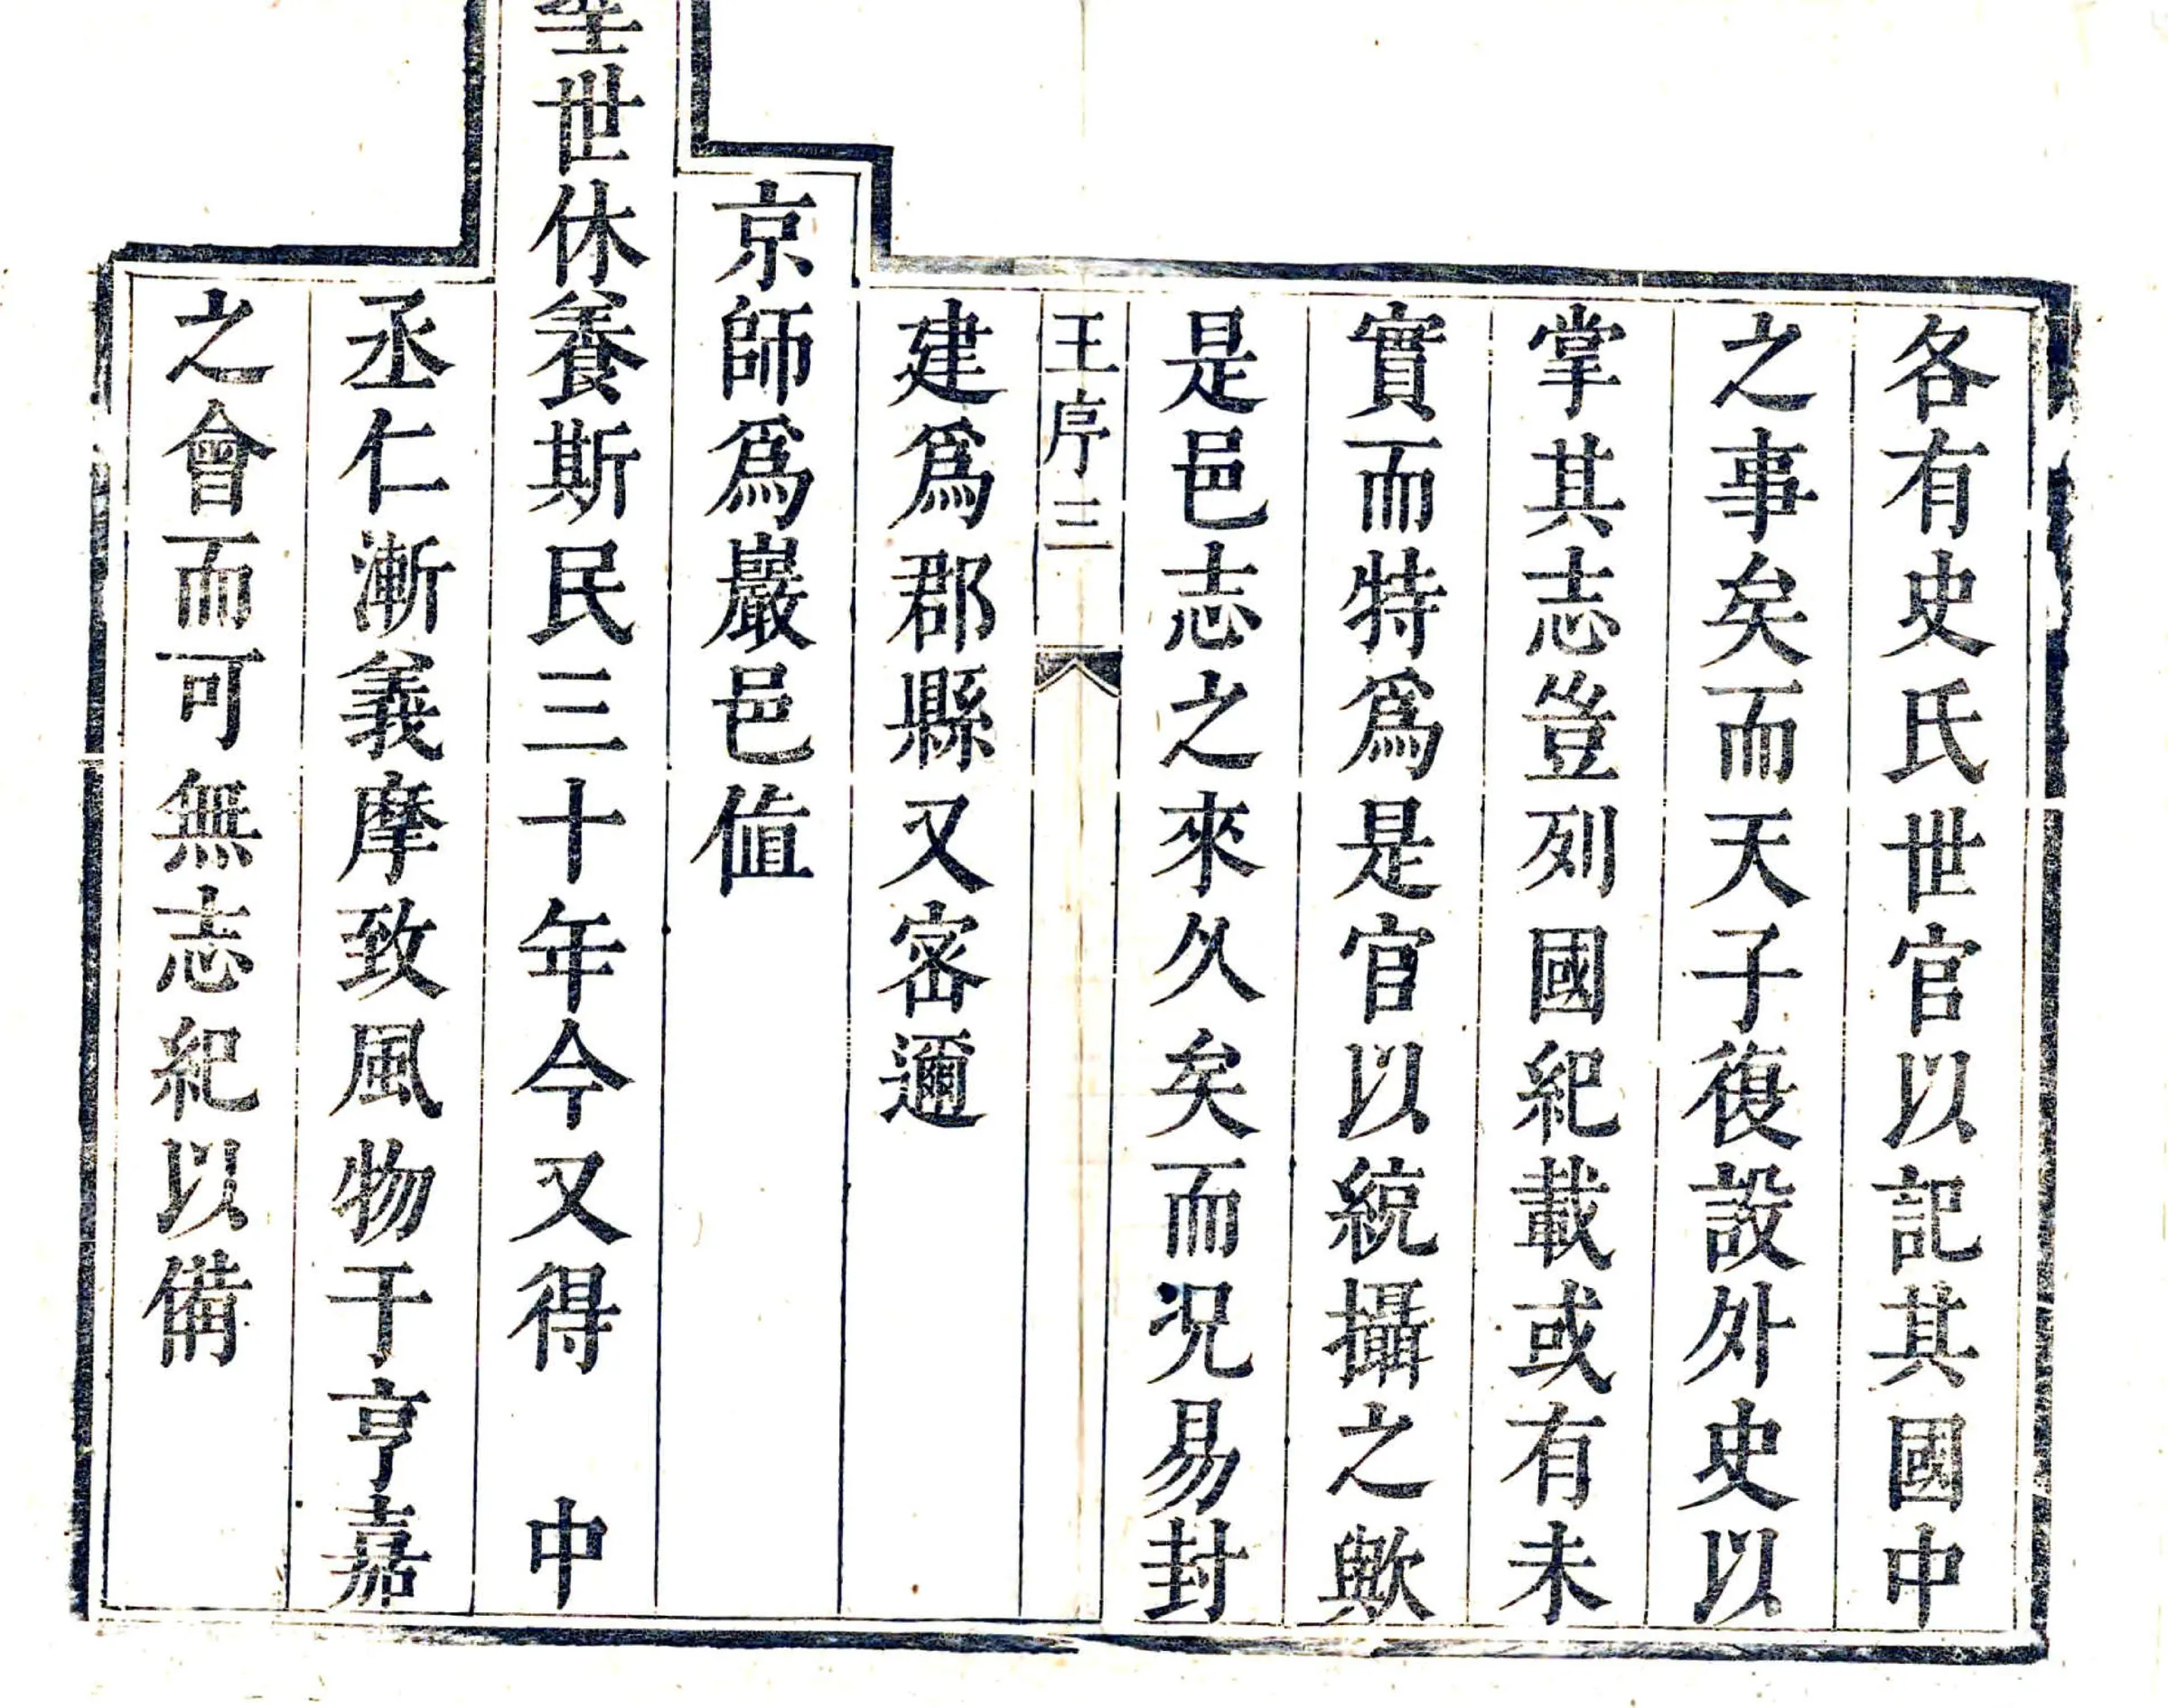 各有史氏世官以記其國中
之事矣而天子復設外史以
掌其志豈列國紀載或有未
實而特爲是官以統攝之歟
是邑志之來久矣而况易封
王序三
建爲郡縣又密邇
京師爲巖邑値
世休養斯民三十年今又得　中
丞仁漸義摩致風物于亨嘉
之會而可無志紀以備